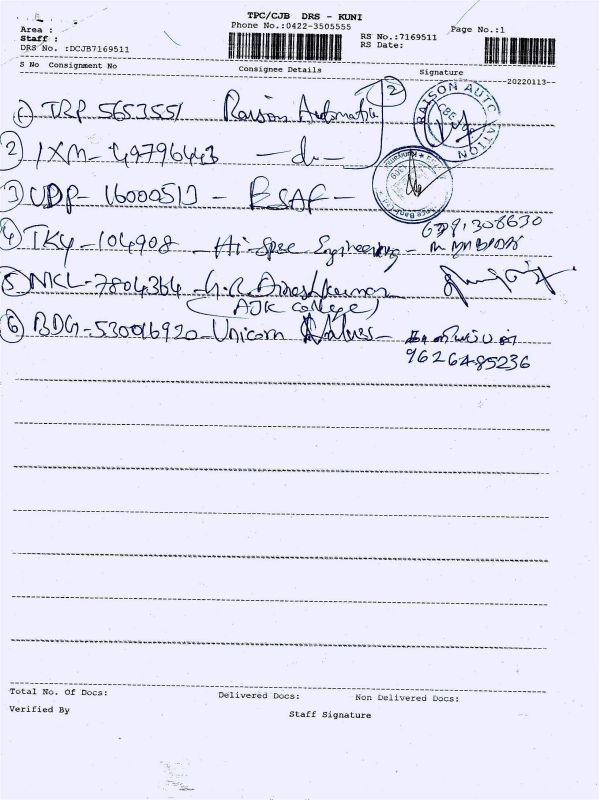 TPC/CJB DRS - KUNI
Phone No.:0422-3505555
Area :
Staff :
DRS No. :DCJB7169511
RS No.:7169511
RS Date:
Page No.:1
S No Consignment No Consignee Details Signature
20220113
1) TRP 5653551 Raison Automation 2
RAISON AUTOMATION
2) IXM- 49796443 -do-
3) UDP- 16000513 - ESAF -
4) TKY-104908 - Hi-Spec Engineering -
5) NKL-7804364 - G.R. Dineshkumar
(AJK College)
6) BDG-530016920- Unicorn Values-
9626485236
Total No. Of Docs: Delivered Docs: Non Delivered Docs:
Verified By Staff Signature